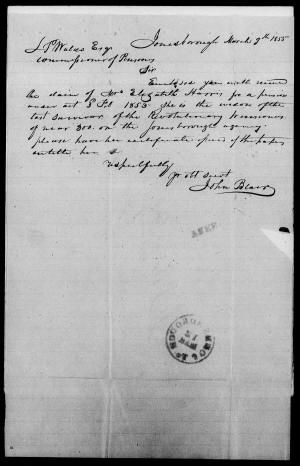 Jonesborough March 9th 1855
L P Waldo Esqr
Commissioner of Pensions
Sir
Enclosed you will receive
the claim of Mrs Elizabeth Harris for a pension
under act 3 Feb 1853. She is the widow of the
last survivor of the Revolutionary Pensioners
of near 300. on the Jonesborough agency
please have her certificate if the papers
entitle her &
respectfully
yr obt servt
John Blair